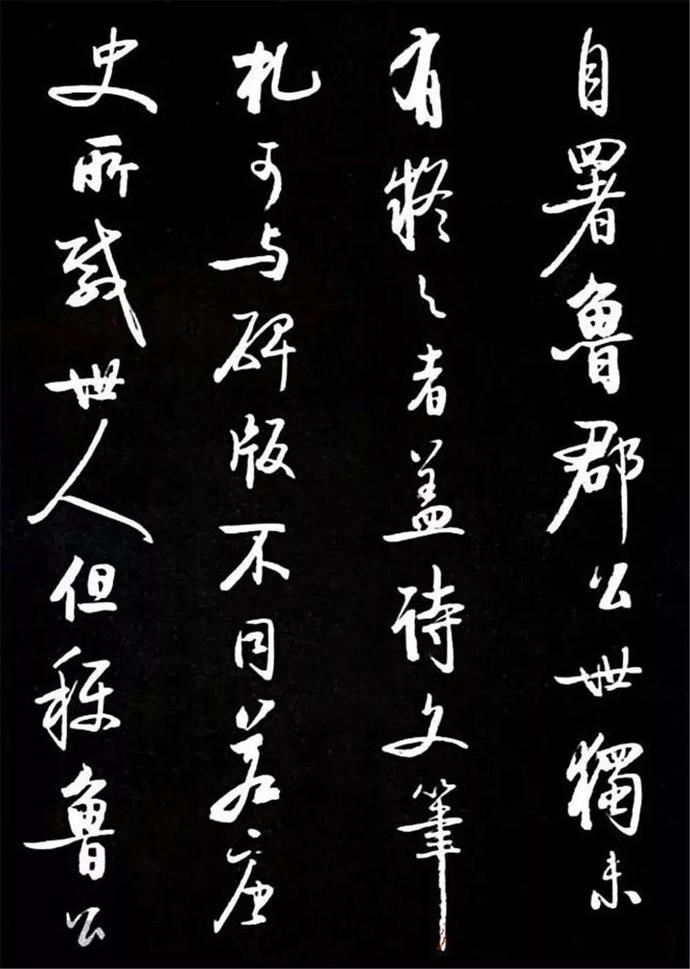 自署魯郡公世獨未
有疑之者盖詩文筆
札可与碑版不同若唐
史所载世人但稱魯公